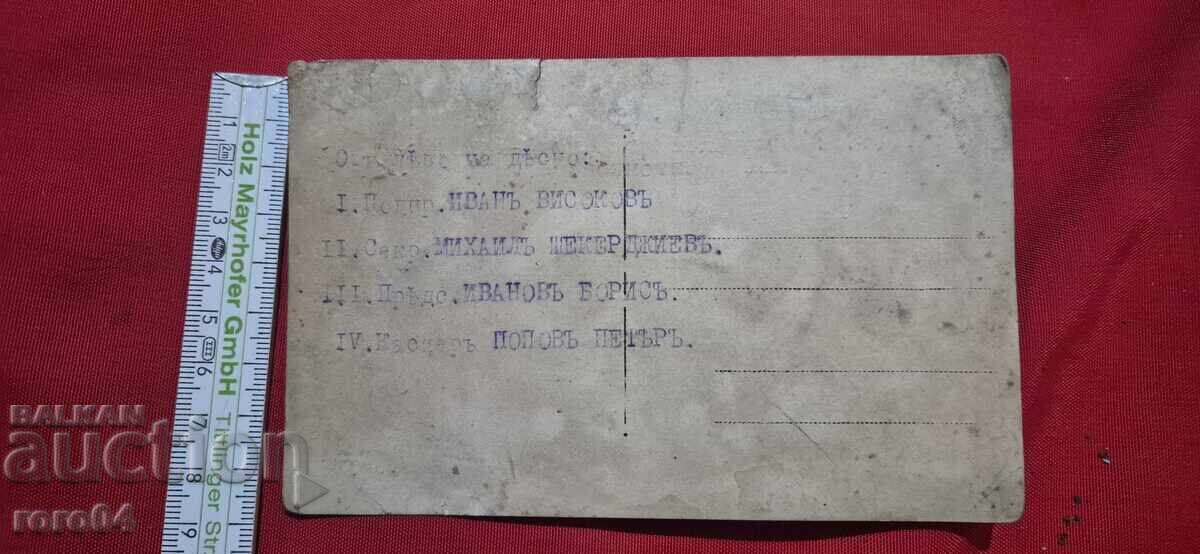 Отъ лѣво на дѣсно:
I. Подпр. ИВАНЪ ВИСОКОВЪ
II. Секр. МИХАИЛЪ ШЕКЕРДЖИЕВЪ.
III. Прѣдс. ИВАНОВЪ БОРИСЪ.
IV. Касиеръ ПОПОВЪ ПЕТЪРЪ.
Holz Mayrhofer GmbH Tittlinger Str
1 2m 2 3 4 5 III 6 7 8 9
BALKAN
auction
roro04